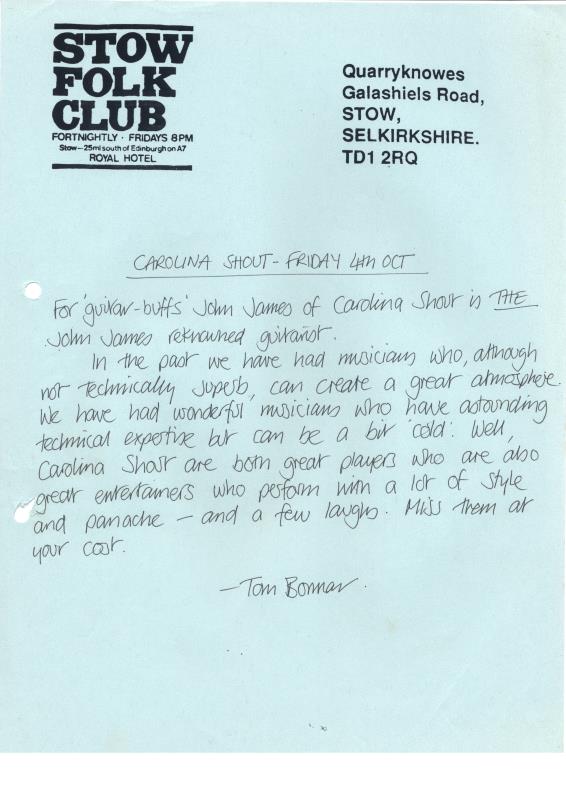 STOW
FOLK
CLUB
FORTNIGHTLY · FRIDAYS 8PM
Stow - 25mi south of Edinburgh on A7
ROYAL HOTEL
Quarryknowes
Galashiels Road,
STOW,
SELKIRKSHIRE.
TD1 2RQ
CAROLINA SHOUT - FRIDAY 4TH OCT
For 'guitar-buffs' John James of Carolina Shout is THE
John James reknowned guitarist.
In the past we have had musicians who, although
not technically superb, can create a great atmosphere.
We have had wonderful musicians who have astounding
technical expertise but can be a bit 'cold'. Well,
Carolina Shout are both great players who are also
great entertainers who perform with a lot of style
and panache - and a few laughs. Miss them at
your cost.
- Tom Bonnar.